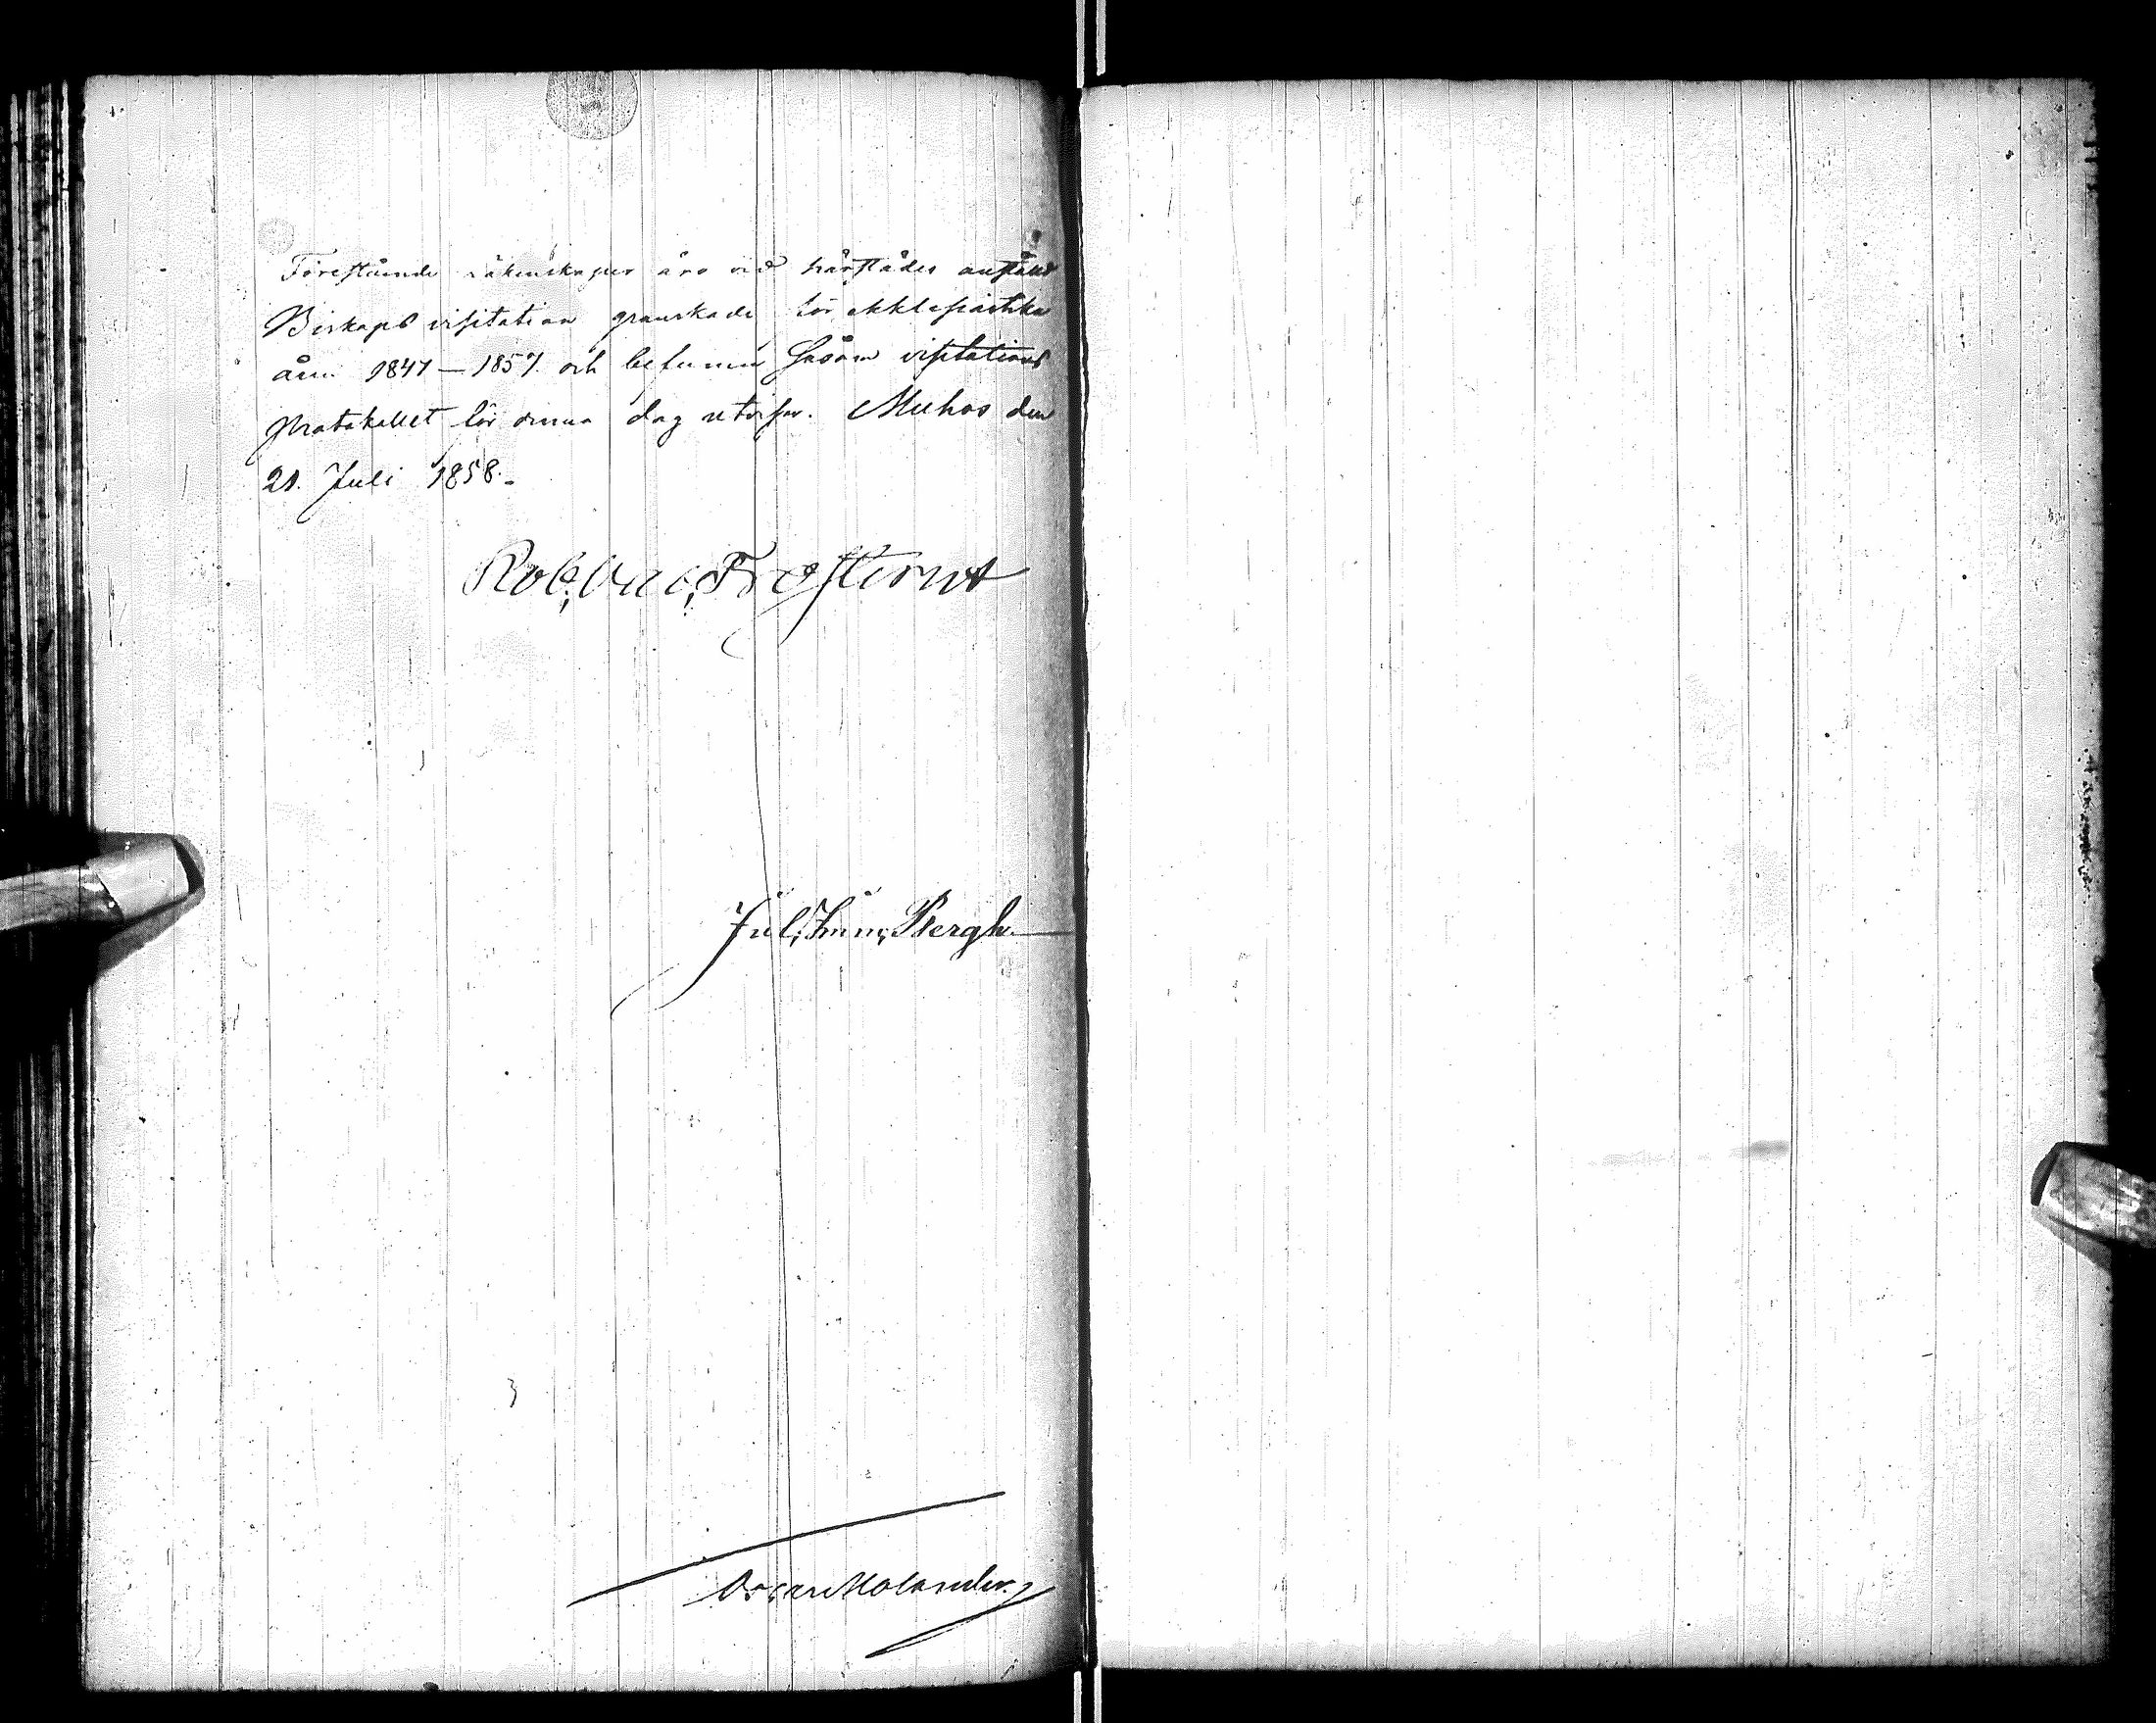 Förestående räkenskaper äro vid härstädes anstäld
Biskops visitation granskade för ekklesiastika
åren 1847–1857. och befunne såsom visitations
protokollet för denna dag utvisar. Muhos den
21. Juli 1858.
Rob: Val: Frosterus
Jul: Imm: Bergh.
Oscar Molander.